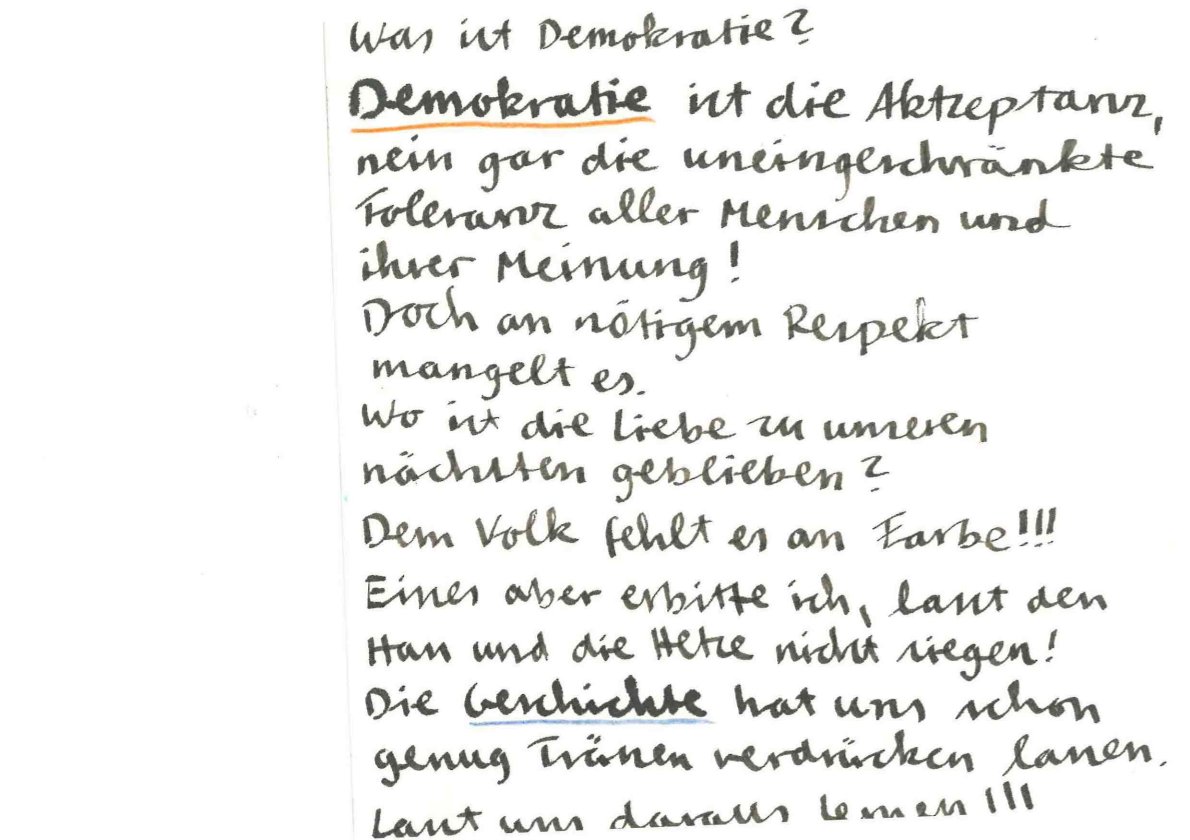 Was ist Demokratie?
Demokratie ist die Aktzeptanz,
nein gar die uneingeschränkte
Toleranz aller Menschen und
ihrer Meinung!
Doch an nötigem Respekt
mangelt es.
Wo ist die Liebe zu unseren
nächsten geblieben?
Dem Volk fehlt es an Farbe!!!
Eines aber erbitte ich, lasst den
Hass und die Hetze nicht siegen!
Die Geschichte hat uns schon
genug Tränen verdrücken lassen.
Lasst uns daraus lernen!!!